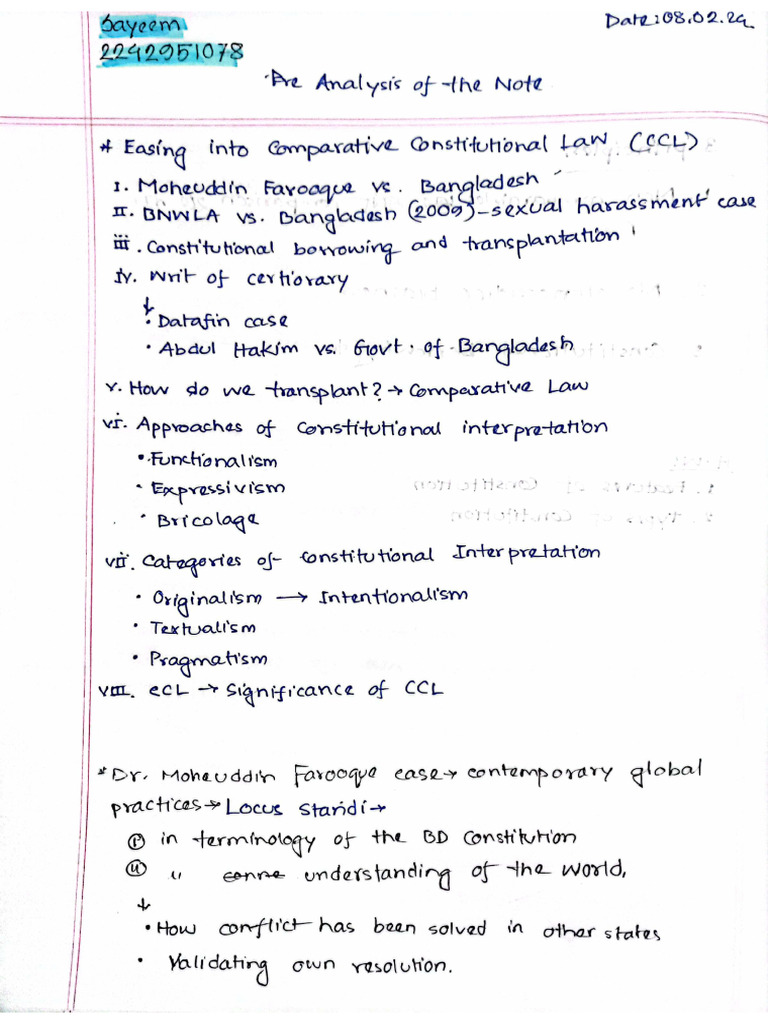 Sayeem
2242951078
Date: 08.02.24
Pre Analysis of the Note
* Easing into Comparative Constitutional Law (CCL)
I. Moheuddin Farooque vs. Bangladesh
II. BNWLA vs. Bangladesh (2009) - sexual harassment case
iii. Constitutional borrowing and transplantation
IV. Writ of certiorary
↓
• Datafin case
• Abdul Hakim vs. Govt. of Bangladesh
V. How do we transplant? → Comparative Law
vi. Approaches of constitutional interpretation
• Functionalism
• Expressivism
• Bricolage
vii. Categories of Constitutional Interpretation
• Originalism → Intentionalism
• Textualism
• Pragmatism
VIII. CCL → Significance of CCL
* Dr. Moheuddin Farooque case → contemporary global
practices → Locus Standi →
(i) in terminology of the BD Constitution
(ii) " understanding of the world,
↓
• How conflict has been solved in other states
• Validating own resolution.